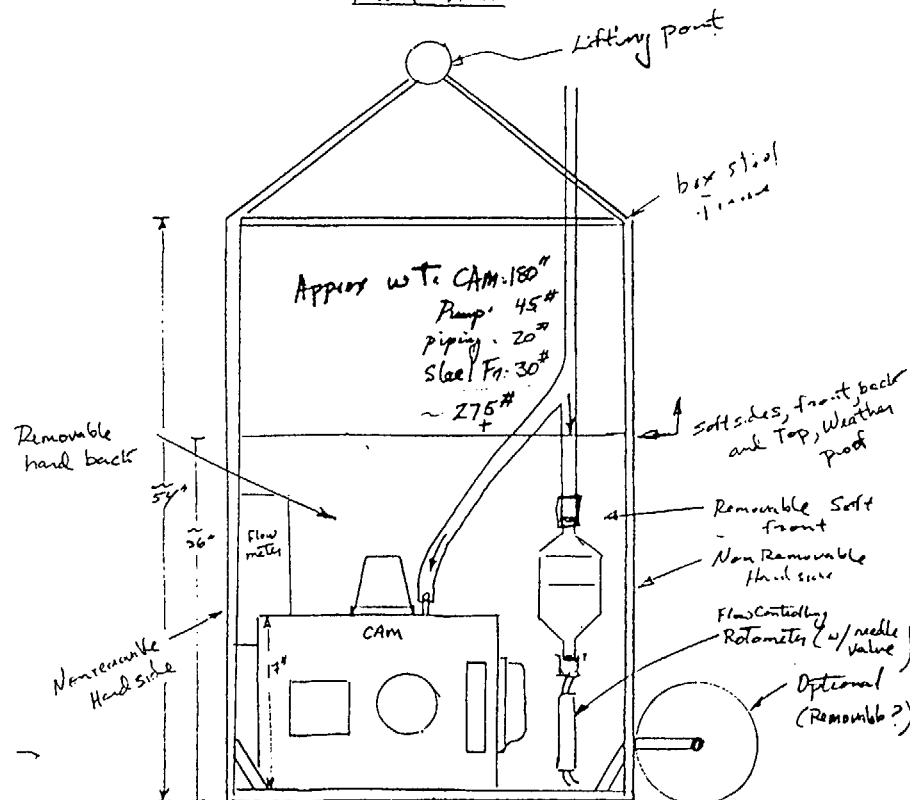 Lifting point
box steel
Approx wT. CAM: 180#
Pump. 45#
piping. 20#
Steel Fr: 30#
~ 275#
+
Soft sides, front, back
and Top, Weather
proof
Removable
hard back
~ 54"
~ 36"
Flow
meter
Removable Soft
front
Non Removable
Hard side
CAM
Flow Controlling
Rotometer (w/ needle
valve)
Nonremovable
Hard side
17"
Optional
(Removable?)